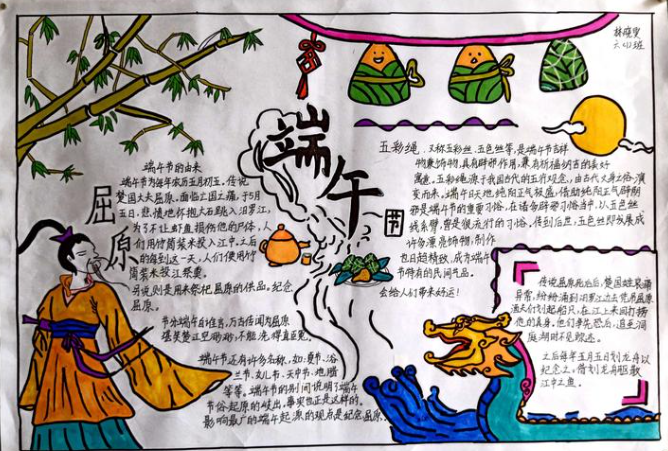 林
六(4)班
端午
节
屈原
端午节的由来
端午节为每年农历五月初五。传说
楚国大夫屈原,面临亡国之痛,于5月
五日,悲愤地怀抱大石跳入汨罗江,
为了不让鱼虾损伤他的尸体,人
们用竹筒装米投入江中。之后
的每到这一天,人们便用竹
筒装米投江祭奠。
另说则是用来祭祀屈原的供品。纪念
屈原。
节分端午自谁言,万古传闻为屈原
堪笑楚江空渺渺,不能洗得直臣冤。
端午节还有许多名称,如:夏节、浴
兰节、女儿节、天中节、地腊
等等。端午节的别间说明了端午
节俗起源的歧出,事实也正是这样的。
影响最广的端午起源的观点是纪念屈原。
五彩绳,又称五彩丝、五色丝等,是端午节吉祥
物兼饰物,具有辟邪作用,兼有祈福纳吉的美好
寓意。五彩绳源于我国古代的五行观念,由古代文身习俗演
变而来。端午日天地纯阳正气极盛,借助纯阳正气辟阴
邪是端午节的重要习俗,在诸多辟邪习俗当中,以五色丝
线系臂,曾是很流行的习俗。传到后世,五色丝即发展成
许多漂亮饰物,制作
也日趋精致,成为端午
节特有的民间气品。
会给人们带来好运!
传说屈原死后,楚国百姓哀痛
异常,纷纷涌到汨罗江边去凭吊屈原
渔夫们划起船只,在江上来回打捞
他的真身。他们争先恐后,追至洞
庭湖时不见踪迹。
之后每年五月五日划龙舟以
纪念之。借划龙舟驱散
江中之鱼。